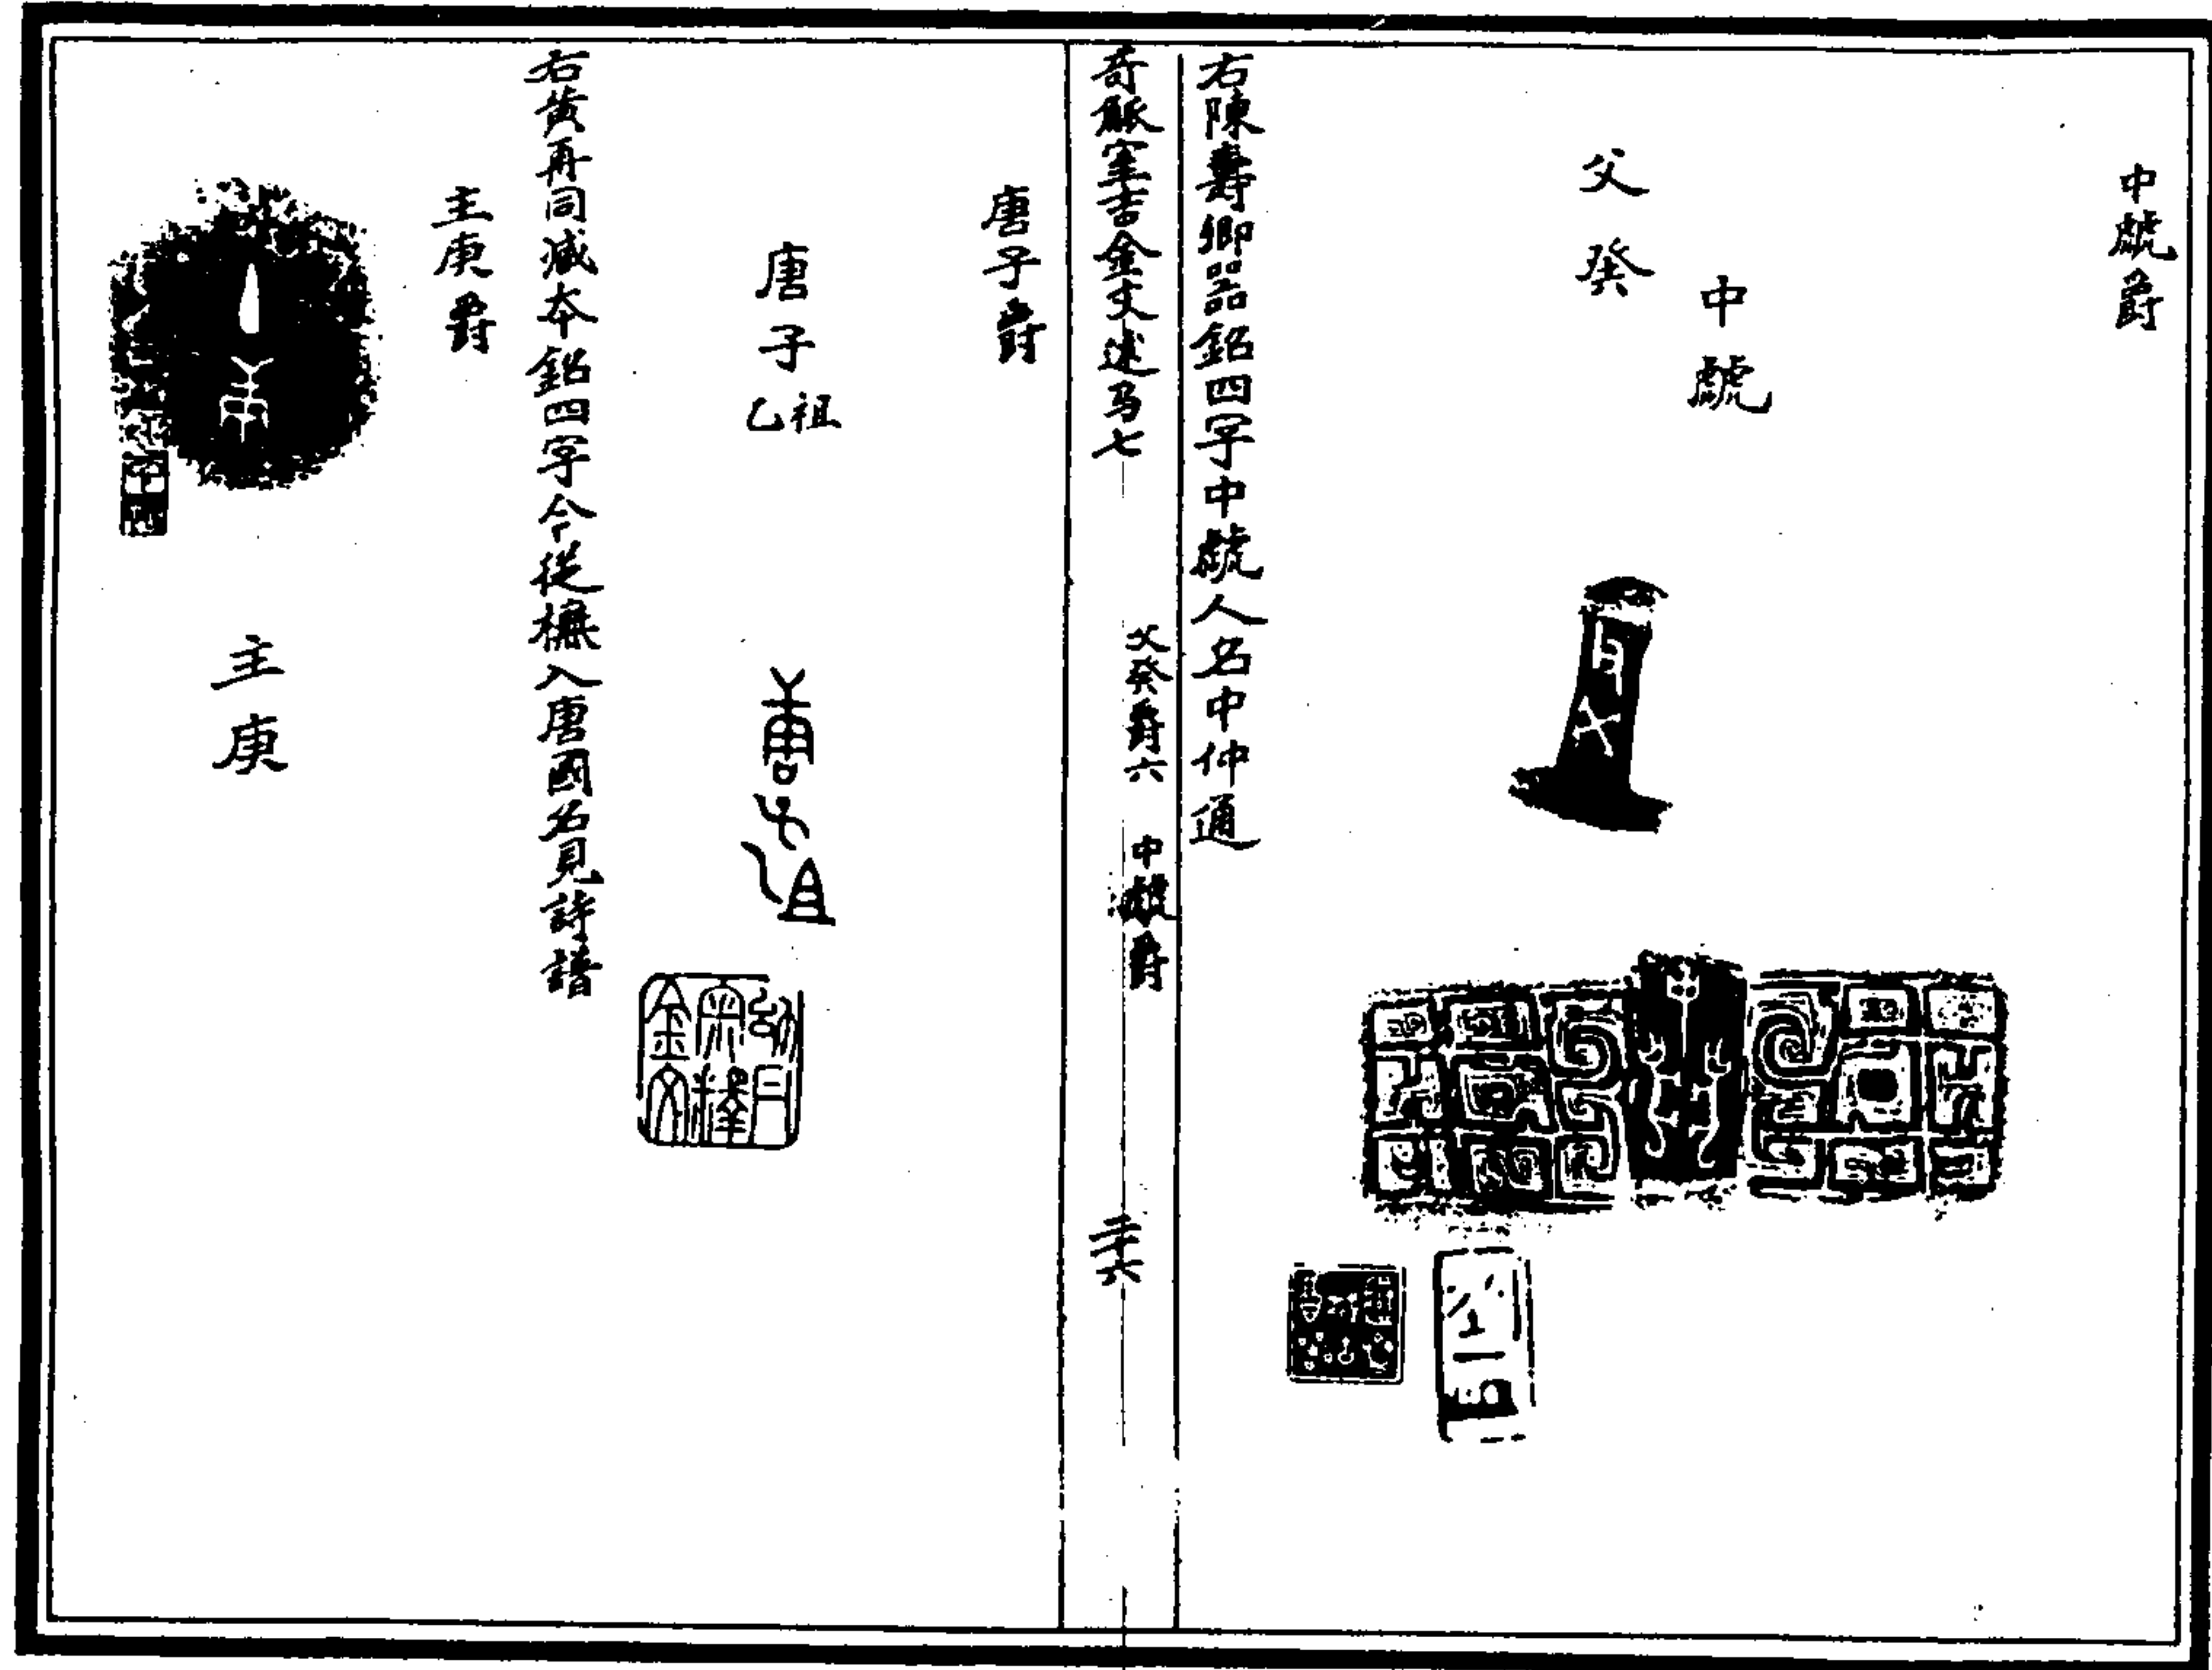 中虤爵
中虤
父癸
右陳壽卿器銘四字中虤人名中仲通
奇觚室吉金文述卷七
父癸爵六 中虤爵
二十六
唐子爵
唐子祖乙
右黃再同臧本銘四字今從橅入唐國名見詩譜
主庚爵
主庚